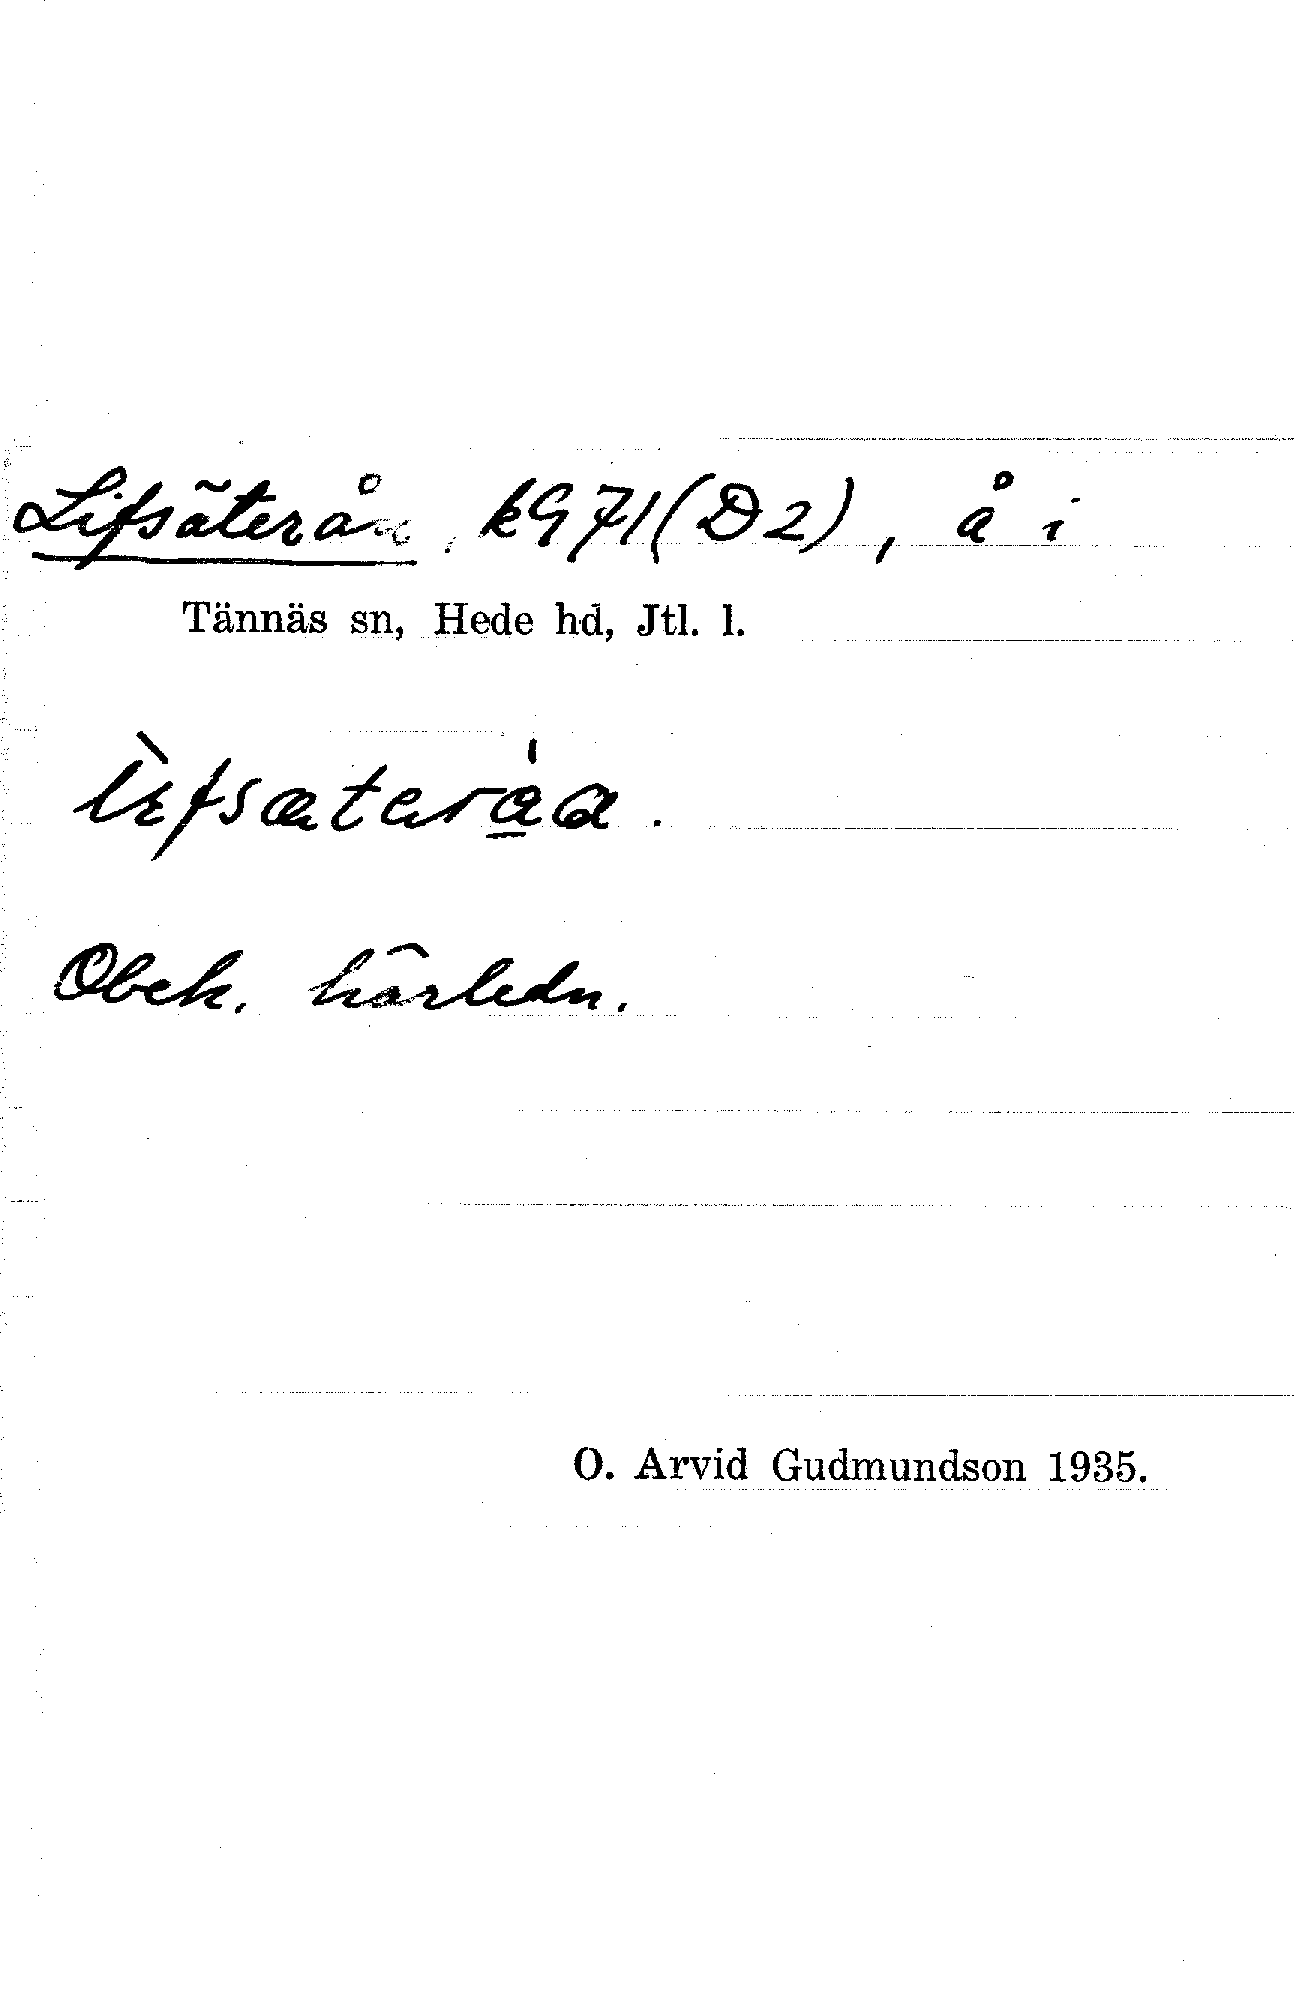 Lifsäterån k971(D2), å i
Tännäs sn, Hede hd, Jtl. l.
Obek. härledn.
O. Arvid Gudmundson 1935.